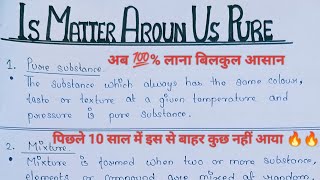 Is Matter Aroun Us Pure
अब 💯% लाना बिलकुल आसान
1. Pure substance.
• The substance which always has the same colour,
taste or texture at a given temperature and
pressure is pure substance.
पिछले 10 साल में इस से बाहर कुछ नहीं आया 🔥🔥
2. Mixture
• Mixture is formed when two or more substance,
elements or compound are mixed at random.